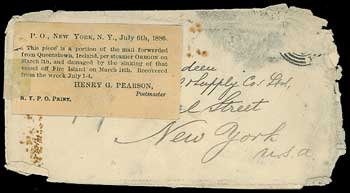 P. O., NEW YORK, N. Y., July 6th, 1886.
This piece is a portion of the mail forwarded
from Queenstown, Ireland, per steamer OREGON on
March 7th, and damaged by the sinking of that
vessel off Fire Island on March 14th. Recovered
from the wreck July 1-4.
HENRY G. PEARSON,
Postmaster
N. Y. P. O. PRINT.
deen
Supply Co. Ltd,
Street
New York
U.S.A